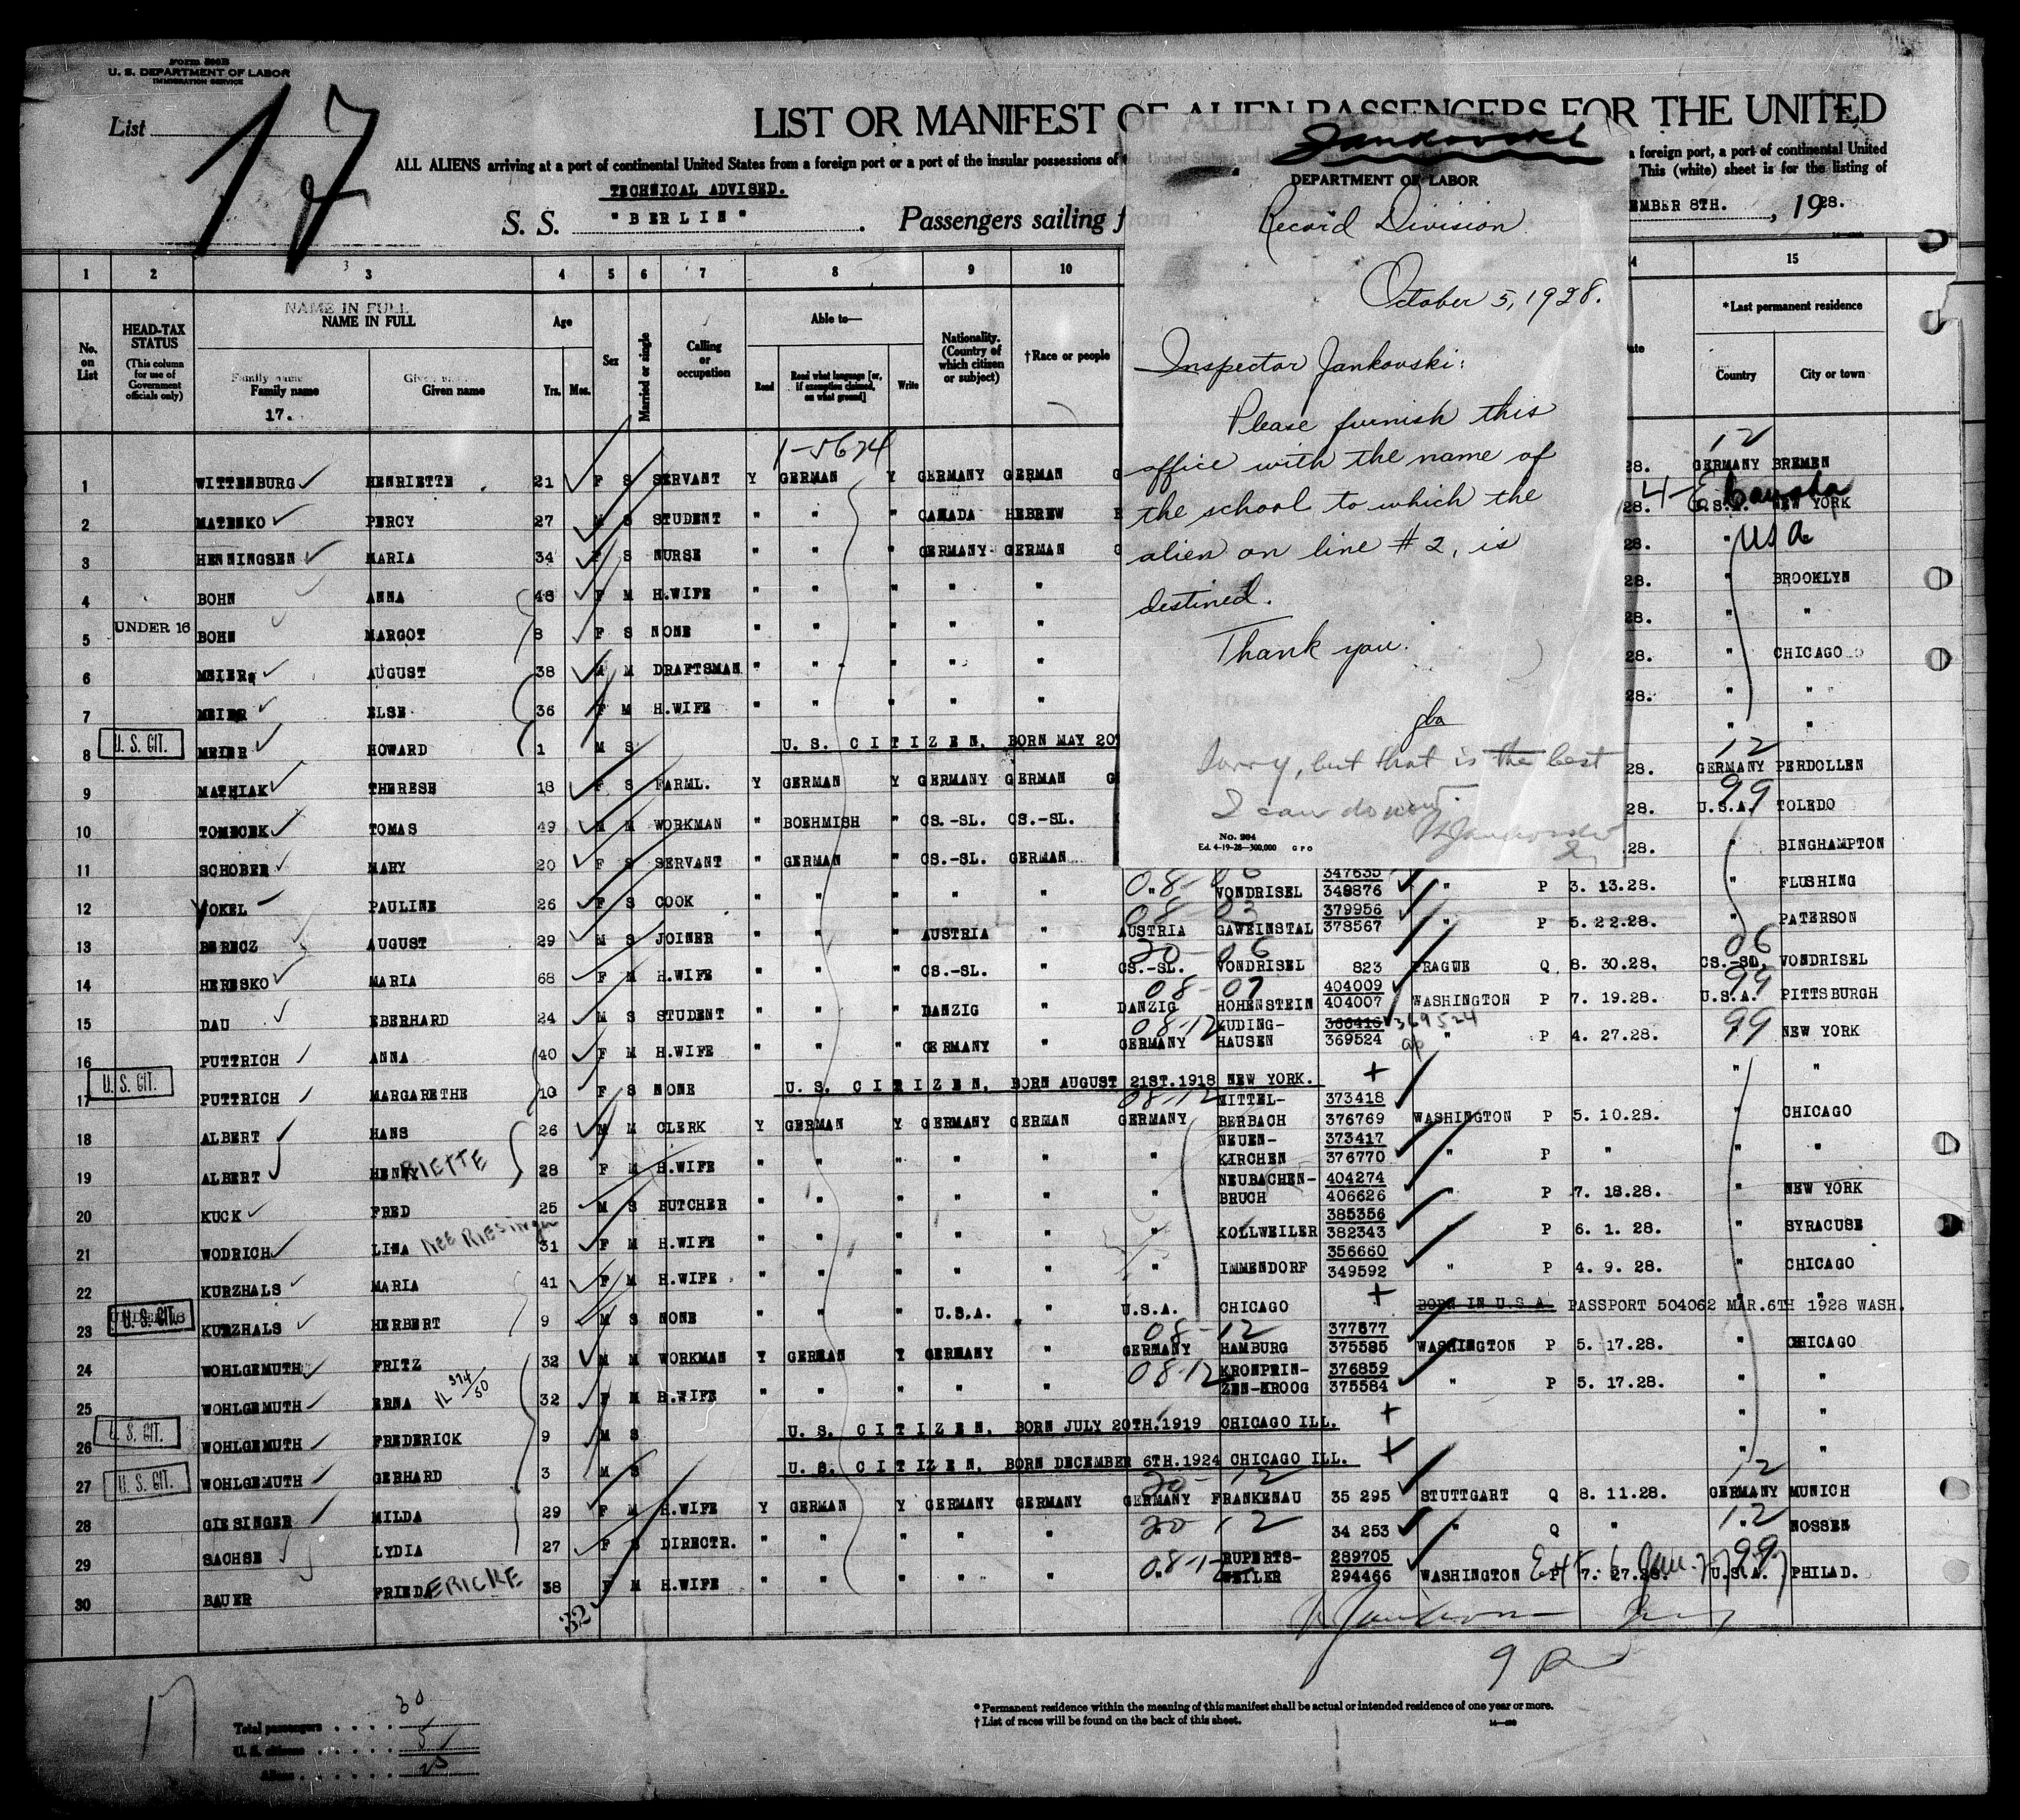 FORM 500B
U. S. DEPARTMENT OF LABOR
IMMIGRATION SERVICE
List 17
LIST OR MANIFEST OF ALIEN PASSENGERS FOR THE UNITED
ALL ALIENS arriving at a port of continental United States from a foreign port or a port of the insular possessions of the United States and
a foreign port, a port of continental United
This (white) sheet is for the listing of
TECHNICAL ADVISED.
S. S. "BERLIN" . Passengers sailing from
EMBER 8TH. , 1928.
Jankovski
DEPARTMENT OF LABOR
Record Division
October 5, 1928.
Inspector Jankovski:
Please furnish this
office with the name of
the school to which the
alien on line #2, is
destined.
Thank you.
gba
Sorry, but that is the best
I can do now.
No. 204
Ed. 4-19-28—300,000 GPO
1 2 3 4 5 6 7 8 9 10 15
No. on List
HEAD-TAX STATUS
(This column for use of Government officials only)
NAME IN FULL
NAME IN FULL
Family name
Family name
17.
Given name
Age
Yrs. Mos.
Sex
Married or single
Calling or occupation
Able to—
Read
Read what language [or, if exemption claimed, on what ground]
Write
Nationality. (Country of which citizen or subject)
† Race or people
* Last permanent residence
Country
City or town
1-5624
12
1 WITTENBURG HENRIETTE 21 F S SERVANT Y GERMAN Y GERMANY GERMAN G 28. GERMANY BREMEN
2 MATENKO PERCY 27 M S STUDENT " " " CANADA HEBREW 28. U.S.A. NEW YORK
3 HENNINGSEN MARIA 34 F S NURSE " " " GERMANY GERMAN G 28. " USA
4 BOHN ANNA 48 F M H.WIFE " " " " " 28. " BROOKLYN
5 UNDER 16 BOHN MARGOT 8 F S NONE " " " " " 28. " "
6 MEIER AUGUST 38 M M DRAFTSMAN " " " " " 28. " CHICAGO
7 MEIER ELSE 36 F M H.WIFE " " " " " 28. " "
8 U. S. CIT. MEIER HOWARD 1 M S U. S. CITIZEN, BORN MAY 20 " "
12
9 MATHIAK THERESE 18 F S FARML. Y GERMAN Y GERMANY GERMAN G 28. GERMANY PERDOLLEN
99
10 TOMECEK TOMAS 49 M M WORKMAN " BOEHMISH " CS.-SL. CS.-SL. 28. U.S.A. TOLEDO
11 SCHOBER MARY 20 F S SERVANT " GERMAN " CS.-SL. GERMAN .28. " BINGHAMPTON
347635
12 VOKEL PAULINE 26 F S COOK " " " " " " VONDRISEL 349876 " P 3. 13.28. " FLUSHING
08-03 379956
13 BERECZ AUGUST 29 M S JOINER " " " AUSTRIA " AUSTRIA GAWEINSTAL 378567 " P 5. 22.28. " PATERSON
20-06 06
14 HERESKO MARIA 68 F M H.WIFE " " " CS.-SL. " CS.-SL. VONDRISEL 823 PRAGUE Q 8. 30.28. CS.-SL. VONDRISEL
08-07 404009 99
15 DAU EBERHARD 24 M S STUDENT " " " DANZIG " DANZIG HOHENSTEIN 404007 WASHINGTON P 7. 19.28. U.S.A. PITTSBURGH
08-12 KUDING- 366416 369524 99
16 PUTTRICH ANNA 40 F M H.WIFE " " " GERMANY " GERMANY HAUSEN 369524 " P 4. 27.28. NEW YORK
17 U. S. CIT. PUTTRICH MARGARETHE 10 F S NONE U. S. CITIZEN, BORN AUGUST 21ST.1918 NEW YORK. + " "
08-12 MITTEL- 373418
18 ALBERT HANS 26 M M CLERK Y GERMAN Y GERMANY GERMAN GERMANY BERBACH 376769 WASHINGTON P 5. 10.28. " CHICAGO
NEUEN- 373417
19 ALBERT HENRIETTE 28 F M H.WIFE " " " " " " KIRCHEN 376770 " P " " "
NEUBACHEN- 404274
20 KUCK FRED 25 M S BUTCHER " " " " " " BRUCH 406626 " P 7. 18.28. " NEW YORK
385356
21 WODRICH LINA NEE RIESINGER 31 F M H.WIFE " " " " " " KOLLWEILER 382343 " P 6. 1. 28. " SYRACUSE
356660
22 KURZHALS MARIA 41 F M H.WIFE " " " " " " IMMENDORF 349592 " P 4. 9. 28. " CHICAGO
23 U. S. CIT. KURZHALS HERBERT 9 M S NONE " " " U.S.A. " U.S.A. CHICAGO + BORN IN U.S.A. PASSPORT 504062 MAR.6TH 1928 WASH.
08-12 377577
24 WOHLGEMUTH FRITZ 32 M M WORKMAN Y GERMAN Y GERMANY " GERMANY HAMBURG 375585 WASHINGTON P 5. 17.28. " CHICAGO
08-12 KRONPRIN- 376859
25 WOHLGEMUTH ERNA 32 F M H.WIFE " " " " " ZEN-KROOG 375584 " P 5. 17.28. " "
26 U. S. CIT. WOHLGEMUTH FREDERICK 9 M S U. S. CITIZEN, BORN JULY 20TH.1919 CHICAGO ILL. + " "
27 U. S. CIT. WOHLGEMUTH GERHARD 3 M S U. S. CITIZEN, BORN DECEMBER 6TH.1924 CHICAGO ILL. + " "
20-12 12
28 GIESINGER MILDA 29 F M H.WIFE Y GERMAN Y GERMANY GERMANY GERMANY FRANKENAU 35 295 STUTTGART Q 8. 11.28. GERMANY MUNICH
20 12 12
29 SACHSE LYDIA 27 F S DIRECTR. " " " " " 34 253 " Q " NOSSEN
08-12 RUPERTS- 289705 99
30 BAUER FRIEDERICKE 38 F M H.WIFE " " " " " WEILER 294466 WASHINGTON P 7. 27.28. U.S.A. PHILAD.
32
17
Total passengers . . . . 30
U. S. citizens . . . . . 5
Aliens . . . . . . 25
* Permanent residence within the meaning of this manifest shall be actual or intended residence of one year or more.
† List of races will be found on the back of this sheet.